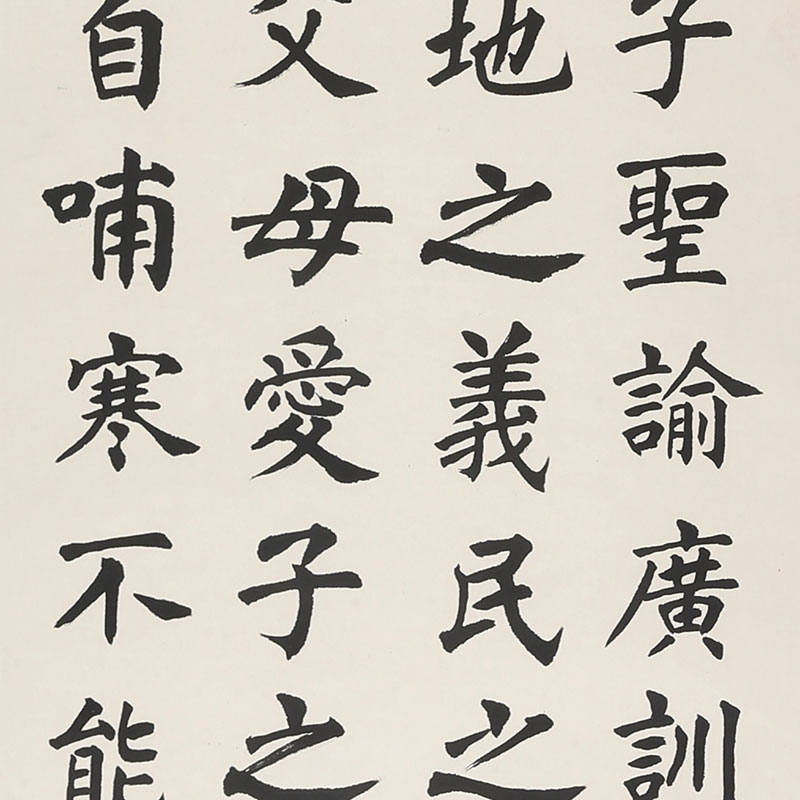 子聖諭廣訓
地之義民之
父母愛子之
自哺寒不能